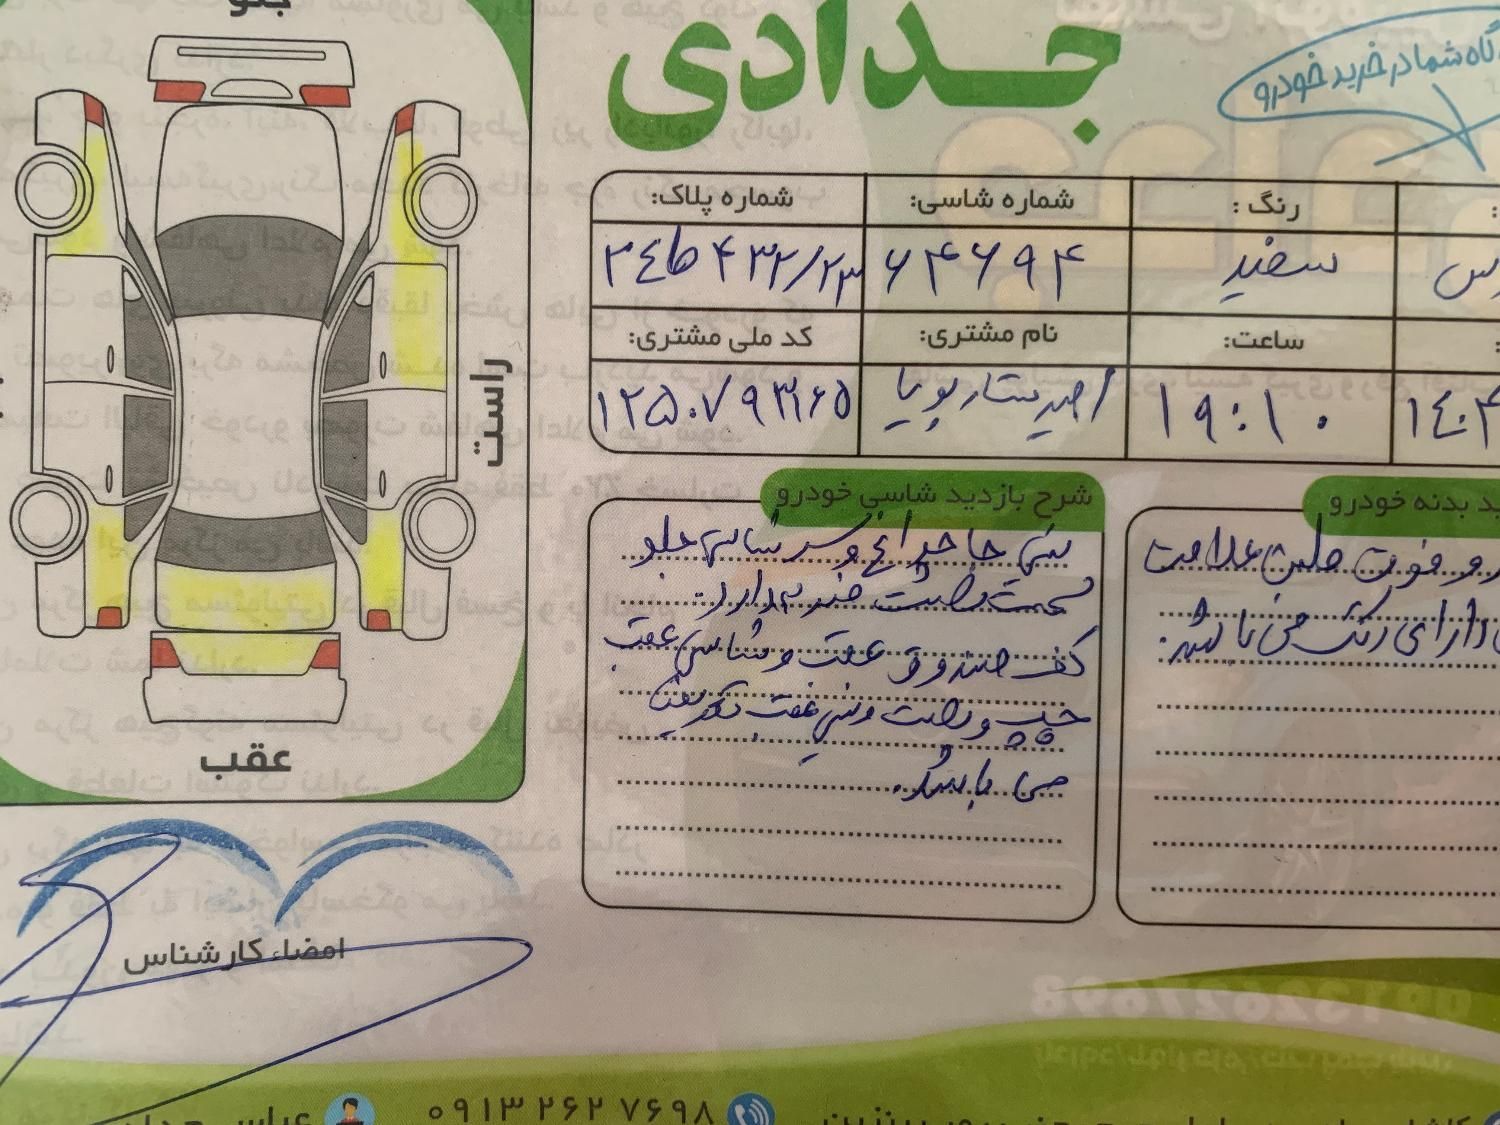 جلو
جدادی
گاه شما در خرید خودرو
رنگ :
شماره شاسی:
شماره پلاک:
سفید
۶۴۶۹۴
۳۴ط۴۳۲/۲۳
ساعت:
نام مشتری:
کد ملی مشتری:
۱۹:۱۰
۱۲۵۰۷۹۳۱۶۵
راست
عقب
ید بدنه خودرو
دارای رنگ می باشد.
شرح بازدید شاسی خودرو
سینی جا چراغ و سر شاسی جلو
سمت راست ضربه دارد.
کف صندوق عقب و شاسی عقب
چپ و راست و سینی عقب تعویض
می باشد.
امضاء کارشناس
۰۹۱۳۲۶۲۷۶۹۸